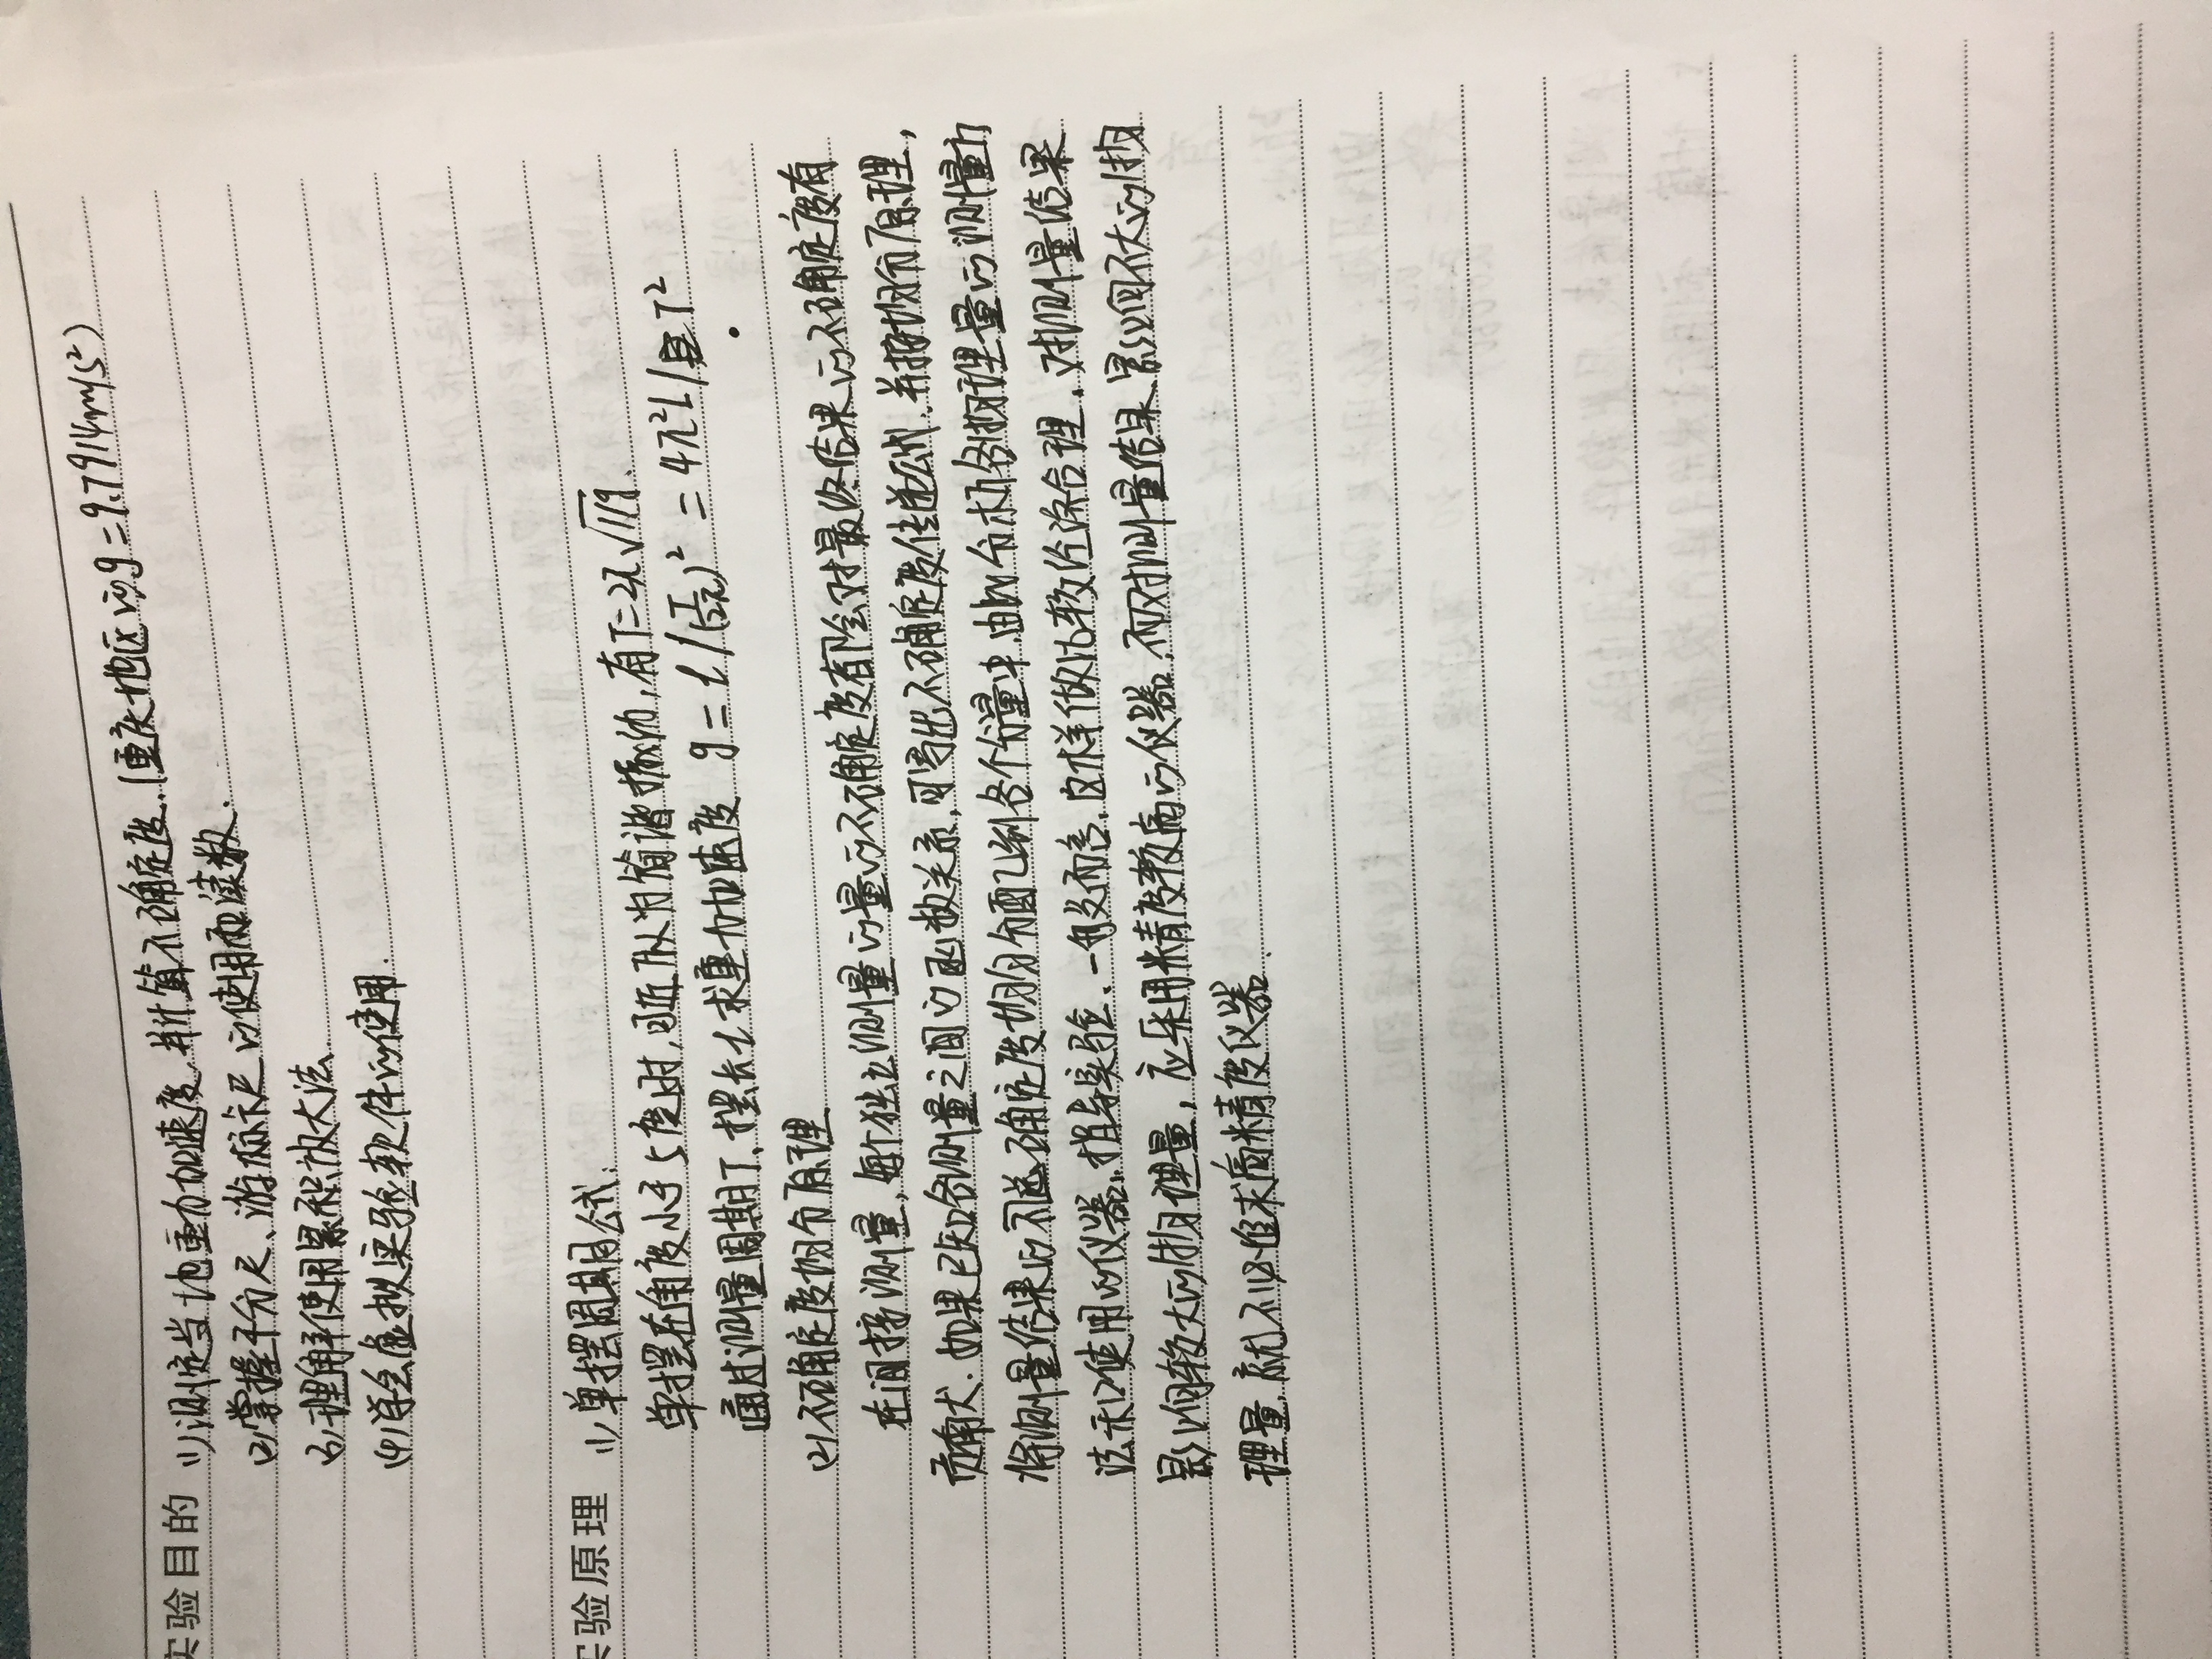 实验目的 (1)测定当地重力加速度,并计算不确定度.(重庆地区的g=9.7914m/s²)
(2)掌握千分尺、游标卡尺的使用和读数.
(3)理解使用累积放大法.
(4)学会虚拟实验软件的使用.
实验原理 (1)单摆周期公式:
单摆在角度小于5度时,可近似为简谐振动,有T=2π√l/g.
通过测量周期T,摆长l求重力加速度 g=l/(T/2π)²=4π²l/T²
(2)不确定度均分原理
在间接测量,每个独立测量的量的不确定度都会对最终结果的不确定度有
贡献.如果已知各测量之间的函数关系,可写出不确定度传递公式,并按均分原理,
将测量结果的不确定度均匀分配到各个分量中,由此分析各物理量的测量方
法和使用的仪器,指导实验.一般而言,这样做比较经济合理.对测量结果
影响较大的物理量,应采用精度较高的仪器,而对测量结果影响不大的物
理量,就不必追求高精度仪器.